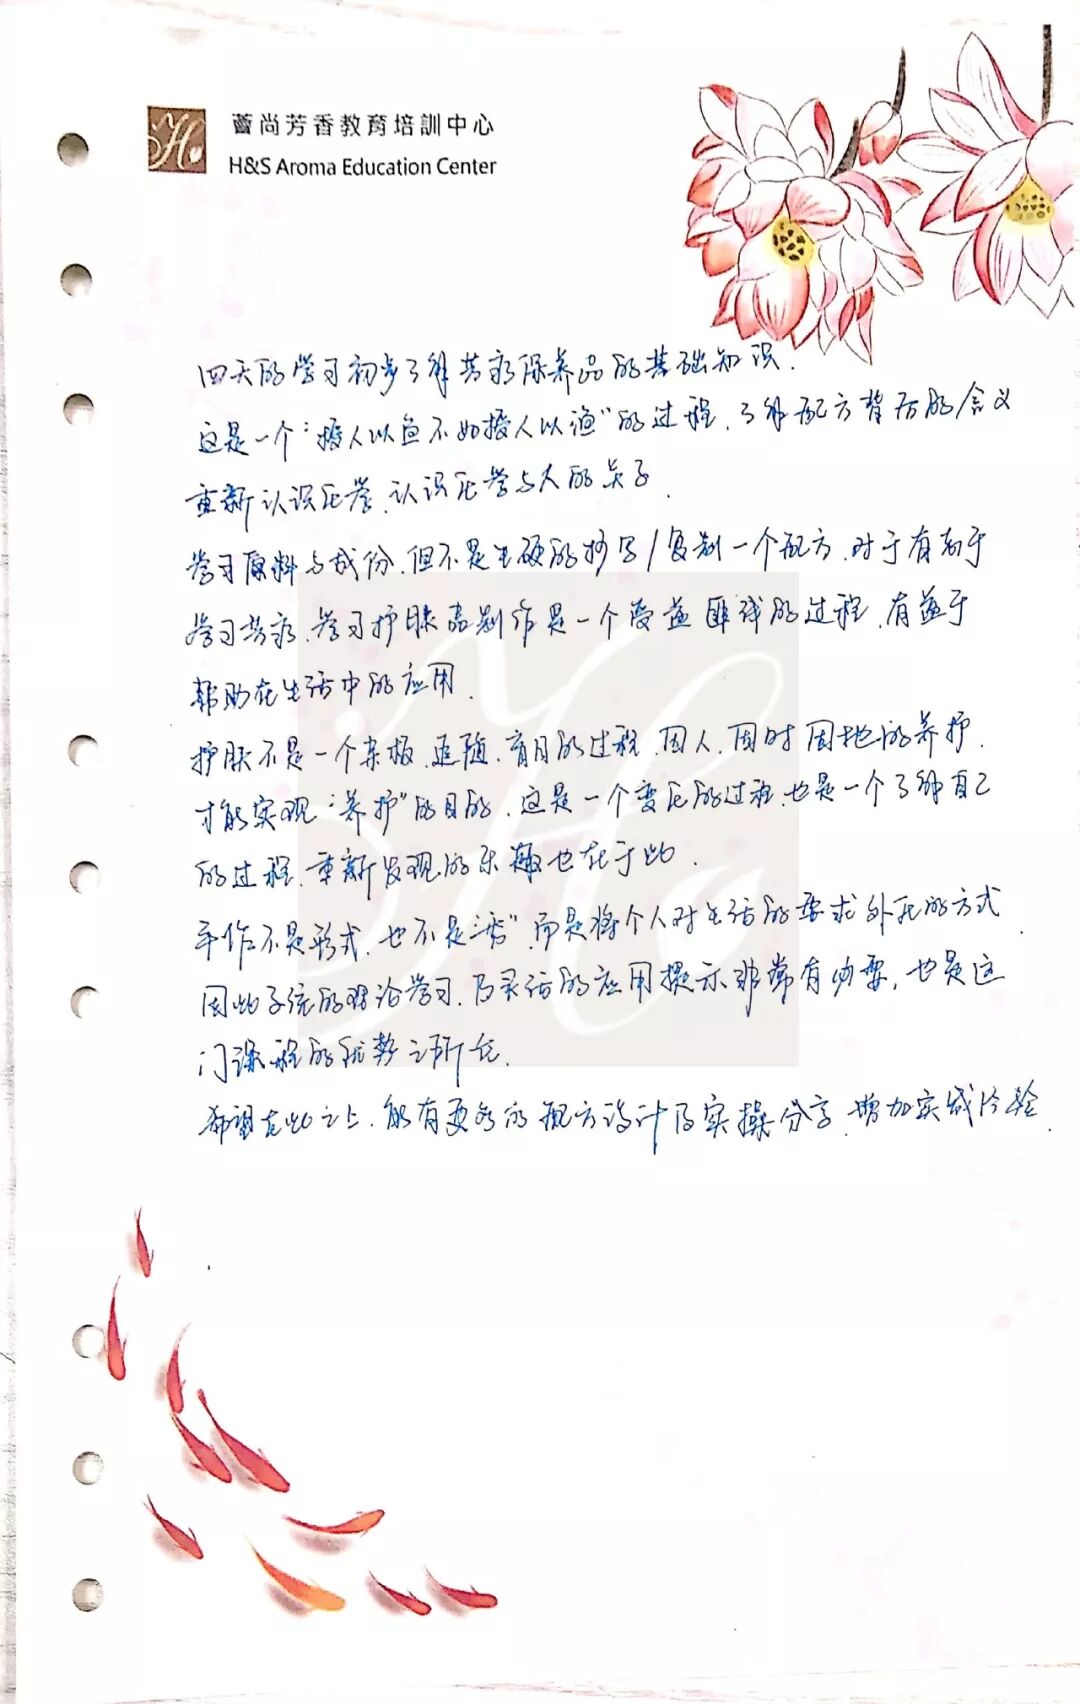 薈尚芳香教育培訓中心
H&S Aroma Education Center
四天的学习初步了解芳疗保养品的基础知识.
这是一个“授人以鱼不如授人以渔”的过程,了解配方背后的含义
重新认识化学,认识化学与人的关系.
学习原料与成份,但不是生硬的抄写/复制一个配方,对于有利于
学习芳疗,学习护肤品制作是一个受益匪浅的过程,有益于
帮助在生活中的应用.
护肤不是一个呆板,追随,盲目的过程,因人,因时因地的养护,
才能实现“养护”的目的,这是一个变化的过程,也是一个了解自己
的过程,重新发现的乐趣也在于此.
手作不是形式,也不是“秀”,而是将个人对生活的要求外化的方式
因此系统的理论学习,及灵活的应用提示非常有必要,也是这
门课程的优势之所在.
希望在此之上,能有更多的配方设计及实操分享,增加实践经验.